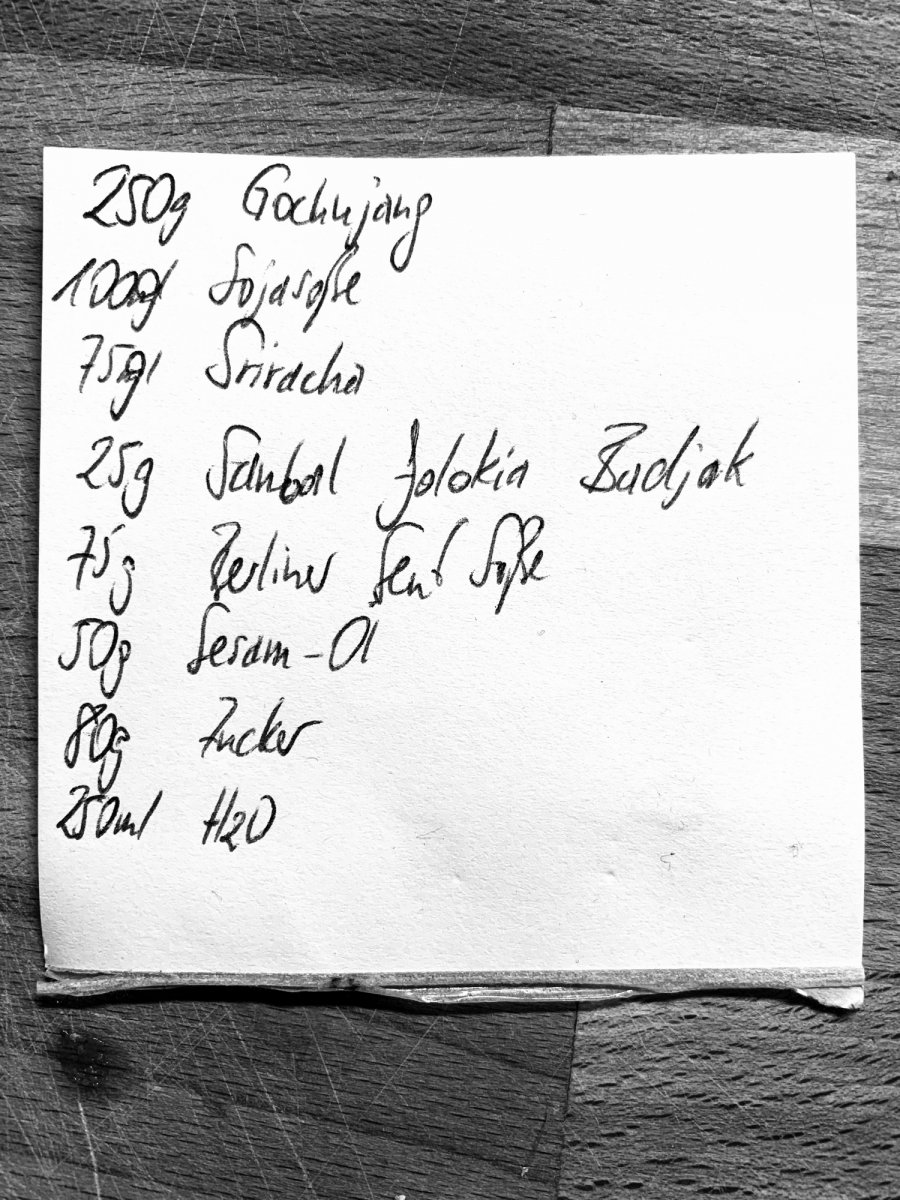 250g Gochujang
100g Sojasoße
75g Sriracha
25g Sambal Jolokia Badjak
75g Berliner Senf Soße
50g Sesam-Öl
80g Zucker
250ml H2O